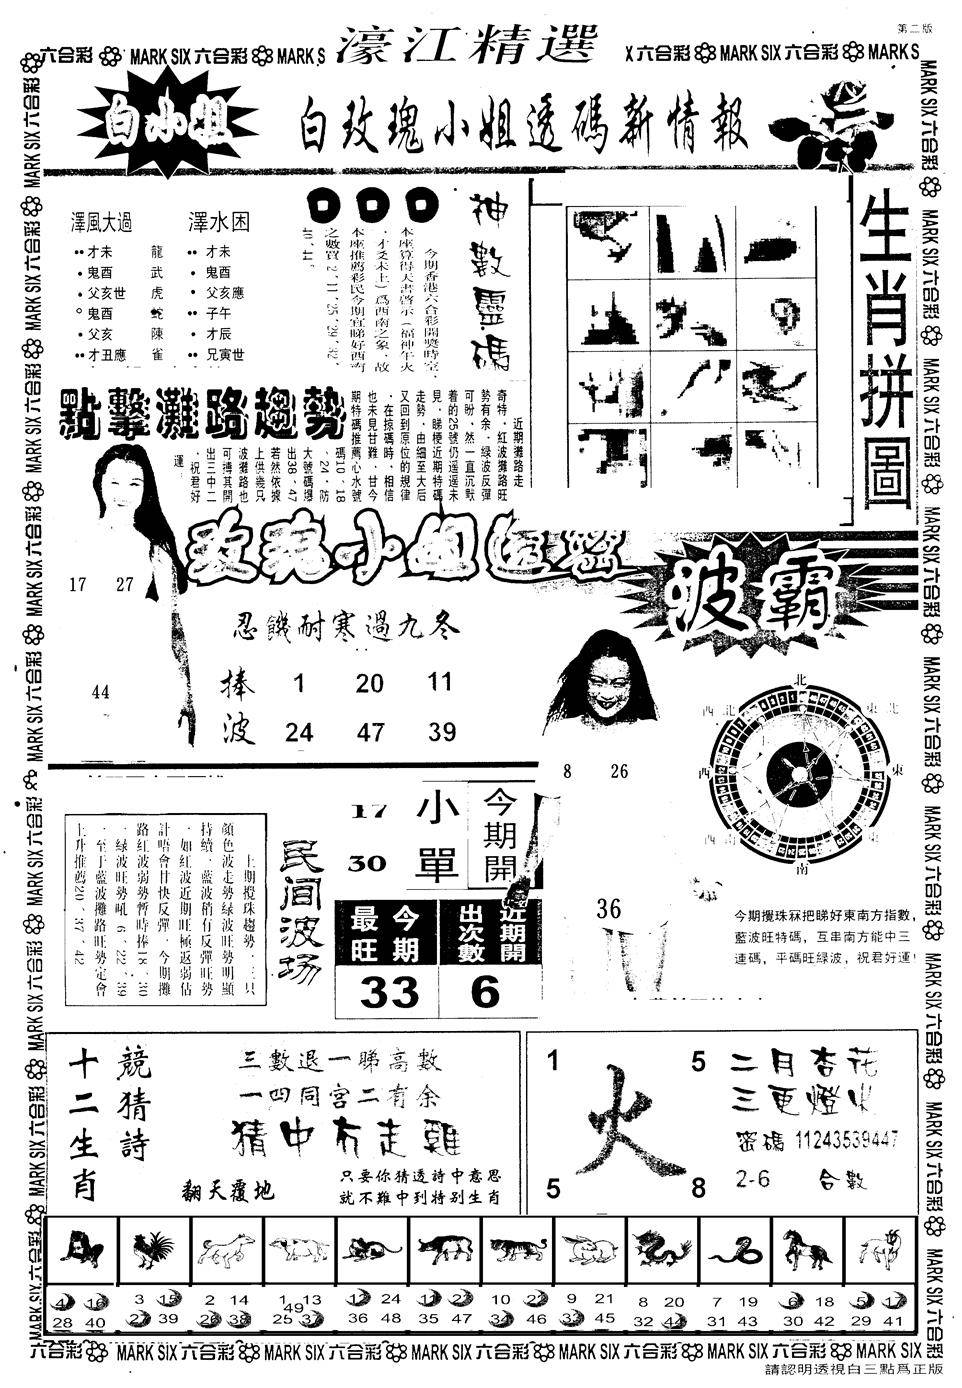 第二版
濠江精選
六合彩 MARK SIX 六合彩 MARK S
X 六合彩 MARK SIX 六合彩 MARK S
白小姐
白玫瑰小姐透碼新情報
澤風大過
才未 龍
鬼酉 武
父亥世 虎
鬼酉 蛇
父亥 陳
才丑應 雀
澤水困
才未
鬼酉
父亥應
子午
才辰
兄寅世
神數靈碼
今期香港六合彩開獎時室，
本座算得天書啓示（福神午火
，才爻未土）爲西南之象，故
本座推薦彩民今期宜睇好西南
之數買2、11、25、29、32、
40、44。
生肖拼圖
點擊灘路趨勢
近期攤路走
奇特，紅波攤路旺
勢有余，绿波反彈
可盼，然一直沉默
着的25號仍遥遥未
見，睇梗近期特碼
走勢，由細至大后
又回到原位的規律
，在掠碼時，相信
也未見甘難，甘今
期特碼推薦心水號
碼10、18
、24，防
大號碼爆
出38、47
若然依據
上供幾只
波攤路也
可搏其開
出三中二
，祝君好
運
玫瑰小姐透密
17 27
44
忍饑耐寒過九冬
捧波
1 20 11
24 47 39
波霸
8 26
36
北
東北
東
東南
南
西南
西
西北
今期攪珠冧把睇好東南方指數，
藍波旺特碼，互串南方能中三
連碼，平碼旺绿波，祝君好運！
上期攪珠趨勢，三只
顔色波走勢绿波旺勢明顯
持續，藍波稍有反彈旺勢
，如紅波近期旺極返弱估
計唔會甘快反彈，今期攤
路紅波弱勢暫時捧18、30
，绿波旺勢吼6、22、39
，至于藍波攤路旺勢定會
上升推薦20、37、42
民间波场
17 小
30 單
今期開
今期最旺
33
近期開出次數
6
十二生肖
競猜詩
三數退一睇高數
一四同宮二有余
猜中冇走雞
翻天覆地
只要你猜透詩中意思
就不難中到特别生肖
1 5
火
5 8
二月杏花
三更燈火
密碼 11243539447
2-6 合數
3 15
27 39
2 14
26 38
1 13
49
25 37
12 24
36 48
11 23
35 47
10 22
34 46
9 21
33 45
8 20
32 44
7 19
31 43
6 18
30 42
5 17
29 41
4 16
28 40
六合彩 MARK SIX 六合彩 MARK SIX 六合彩 MARK SIX 六合彩 MARK SIX 六合彩 MARK SIX 六合彩
請認明透視白三點爲正版